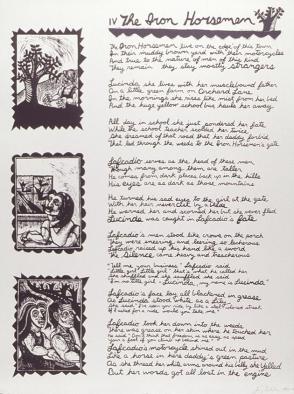 IV The Iron Horsemen
The Iron Horsemen live on the edge of this town
In their muddy brown yard with their motorcycles
And true to the nature of men of this kind
They remain they stay mostly strangers
Lucinda she lives with her musclebound father
On a little green farm on Orchard Lane
In the mornings she rises like mist from her bed
And the huge yellow school bus hauls her away
All day in school she just pondered her fate
While the school teacher scolded her twice
She dreamed of that road that her daddy forbid
That led through the weeds to the Iron Horsemen's gate
Lafcadio serves as the head of these men
Though many among them are taller
He comes from dark places back up in the hills
His eyes are as dark as those mountains
He turned his sad eyes to the girl at the gate
With her hair never cut by a blade
He warned her and scorned her but she never fled
Lucinda was caught in Lafcadio's fate
Lafcadio's men stood like crows on the porch
They were sneering and leering so lecherous
Lafcadio raised up his hand like a sword
The silence came heavy and treacherous
"Tell me your business" Lafcadio said
"Little girl, little girl" that's what he called her
She shuffled and she snuffled she said
"I'm no little girl - Lucinda, my name is Lucinda"
Lafcadio's face lay all blackened in grease
As Lucinda stood white as a
Lafcadio took her down into the weeds
There was grease on her skin where he touched her
Lafcadio's motorcycle shined out in the mud
Like a horse in her daddy's green pasture
As she thread her white arms around his belly she yelled
But her words got all lost in the engine